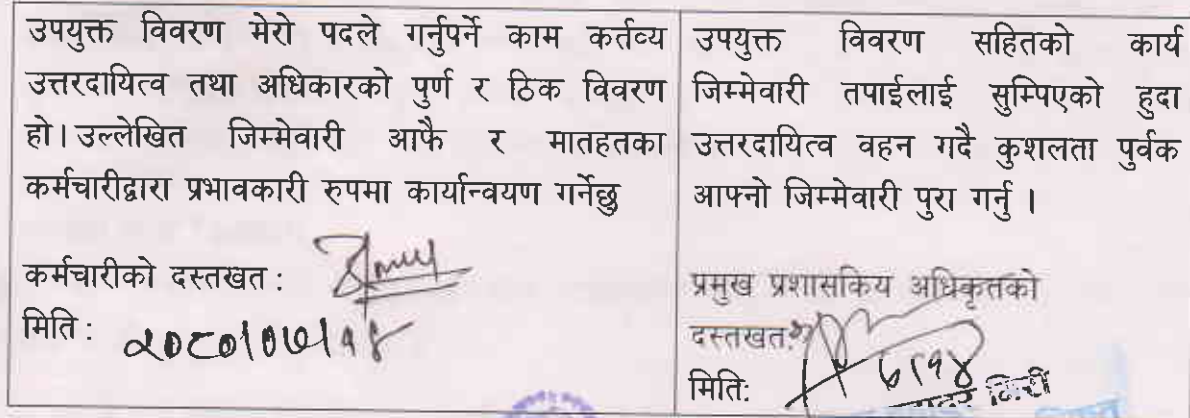 उपयुक्त विवरण मेरो पदले गर्नुपर्ने काम कर्तव्य
उत्तरदायित्व तथा अधिकारको पुर्ण र ठिक विवरण
हो। उल्लेखित जिम्मेवारी आफै र मातहतका
कर्मचारीद्वारा प्रभावकारी रुपमा कार्यान्वयण गर्नेछु
कर्मचारीको दस्तखत:
मिति: २०८०|०७|१४
उपयुक्त विवरण सहितको कार्य
जिम्मेवारी तपाईलाई सुम्पिएको हुदा
उत्तरदायित्व वहन गदै कुशलता पुर्वक
आफ्नो जिम्मेवारी पुरा गर्नु ।
प्रमुख प्रशासकिय अधिकृतको
दस्तखत:
मिति: ७/१४